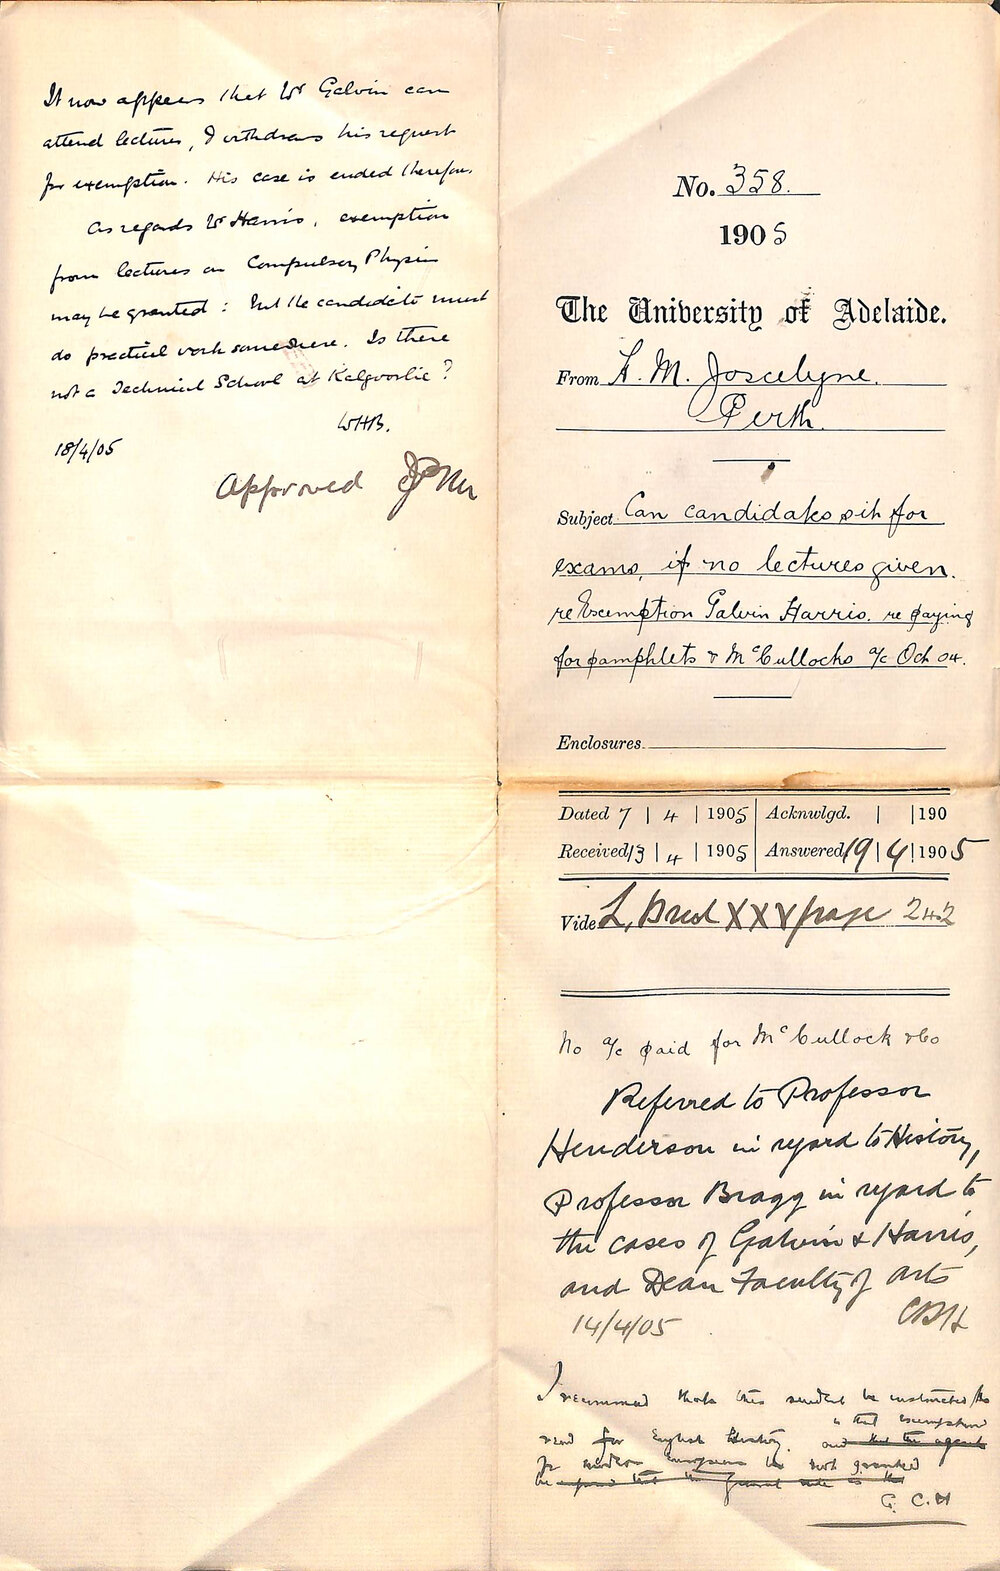 It now appears that Mr Galvin can
attend lectures, I withdraw his request
for exemption. His case is ended therefore.
As regards Mr Harris, exemption
from lectures on Compulsory Physics
may be granted: but the candidate must
do practical work somewhere. Is there
not a Technical School at Kalgoorlie?
WHB.
18/4/05
Approved
No. 358.
1905
The University of Adelaide.
From A. M. Joscelyne.
Perth.
Subject Can candidates sit for
exams, if no lectures given.
re Exemption Galvin Harris. re paying
for pamphlets & McCullochs a/c Oct 04.
Enclosures
Dated 7 | 4 | 1905 | Acknwlgd. | | 190
Received 13 | 4 | 1905 | Answered 19 | 4 | 1905
Vide L. page 242
No a/c paid for McCullock & Co
Referred to Professor
Henderson in regard to History,
Professor Bragg in regard to
the cases of Galvin & Harris,
and Dean Faculty of Arts
14/4/05 CRH
I recommend that this student be instructed to
read for English History. and that exemption
for modern European be not granted
G. C. H